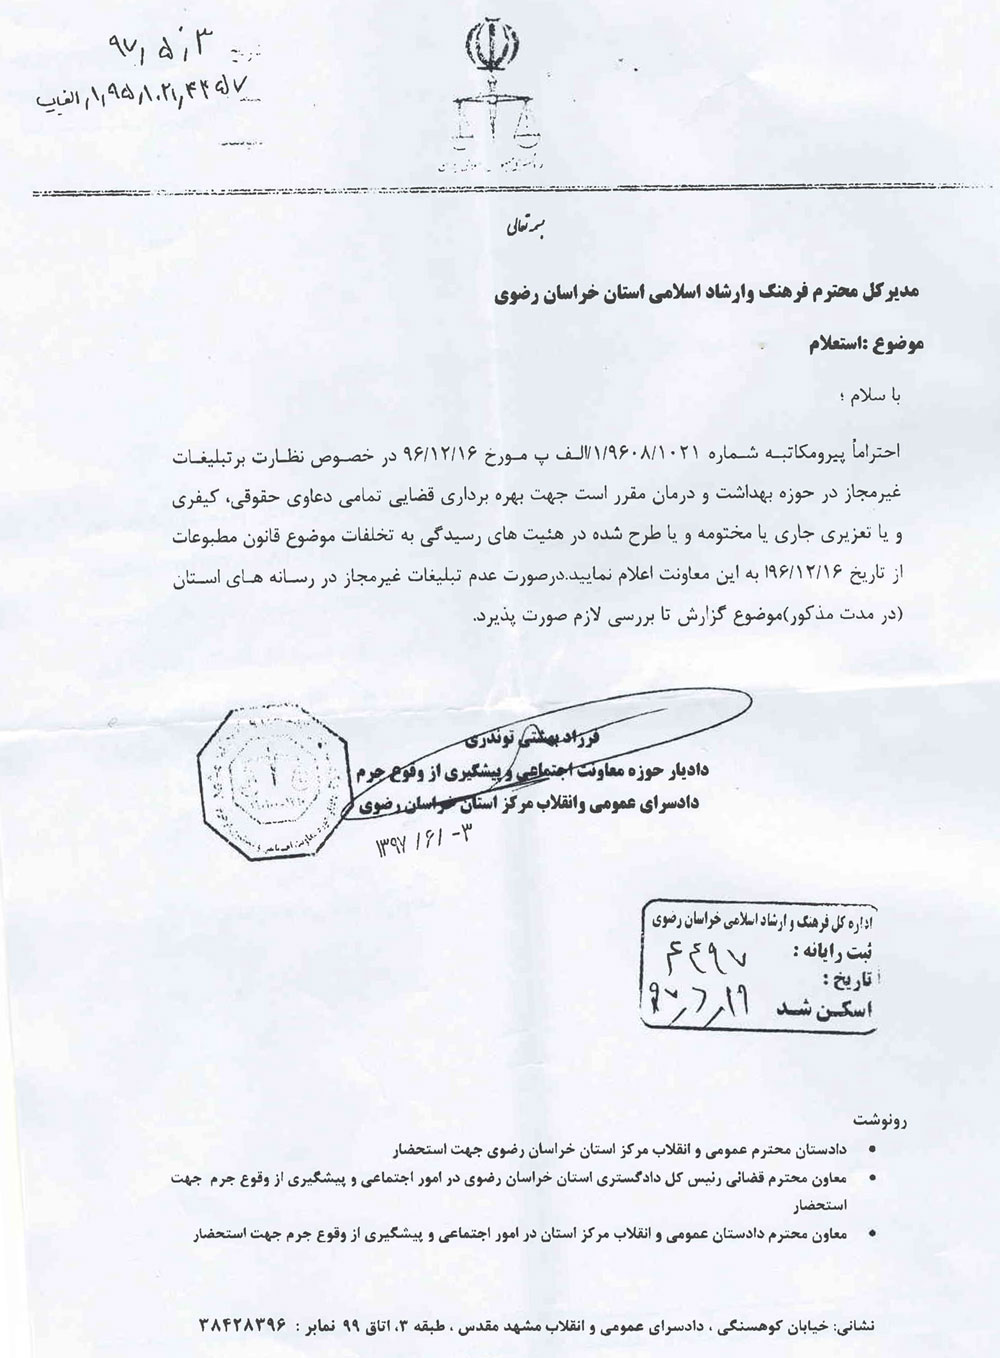 ۹۷/۵/۳
بسمه تعالی
مدیرکل محترم فرهنگ وارشاد اسلامی استان خراسان رضوی
موضوع :استعلام
با سلام ؛
احتراماً پیرومکاتبه شماره ۱/۹۶۰۸/۱۰۲۱/الف پ مورخ ۹۶/۱۲/۱۶ در خصوص نظارت برتبلیغات
غیرمجاز در حوزه بهداشت و درمان مقرر است جهت بهره برداری قضایی تمامی دعاوی حقوقی، کیفری
و یا تعزیری جاری یا مختومه و یا طرح شده در هئیت های رسیدگی به تخلفات موضوع قانون مطبوعات
از تاریخ ۹۶/۱۲/۱۶ به این معاونت اعلام نمایید.درصورت عدم تبلیغات غیرمجاز در رسانه های استان
(در مدت مذکور)موضوع گزارش تا بررسی لازم صورت پذیرد.
فرزاد بهشتی توندری
دادیار حوزه معاونت اجتماعی و پیشگیری از وقوع جرم
دادسرای عمومی وانقلاب مرکز استان خراسان رضوی
۱۳۹۷/۶/-۳
اداره کل فرهنگ و ارشاد اسلامی خراسان رضوی
ثبت رایانه : ۴۴۹۷
تاریخ :
اسکن شد ۹۷/۶/۱۹
رونوشت
• دادستان محترم عمومی و انقلاب مرکز استان خراسان رضوی جهت استحضار
• معاون محترم قضائی رئیس کل دادگستری استان خراسان رضوی در امور اجتماعی و پیشگیری از وقوع جرم جهت
استحضار
• معاون محترم دادستان عمومی و انقلاب مرکز استان در امور اجتماعی و پیشگیری از وقوع جرم جهت استحضار
نشانی: خیابان کوهسنگی ، دادسرای عمومی و انقلاب مشهد مقدس ، طبقه ۳، اتاق ۹۹ نمابر : ۳۸۴۲۸۳۹۶